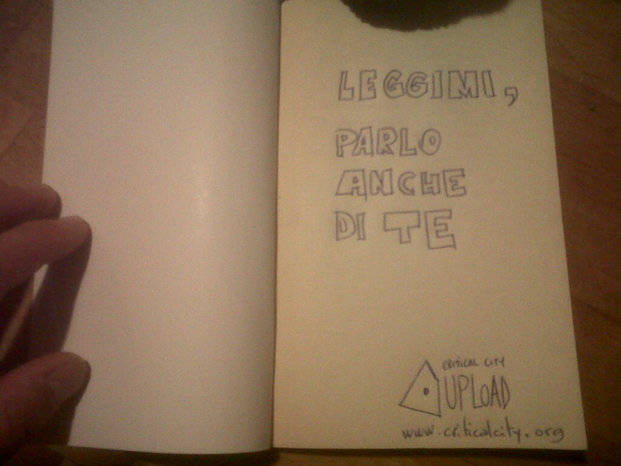 LEGGIMI,
PARLO
ANCHE
DI TE
CRITICAL CITY
UPLOAD
www.criticalcity.org